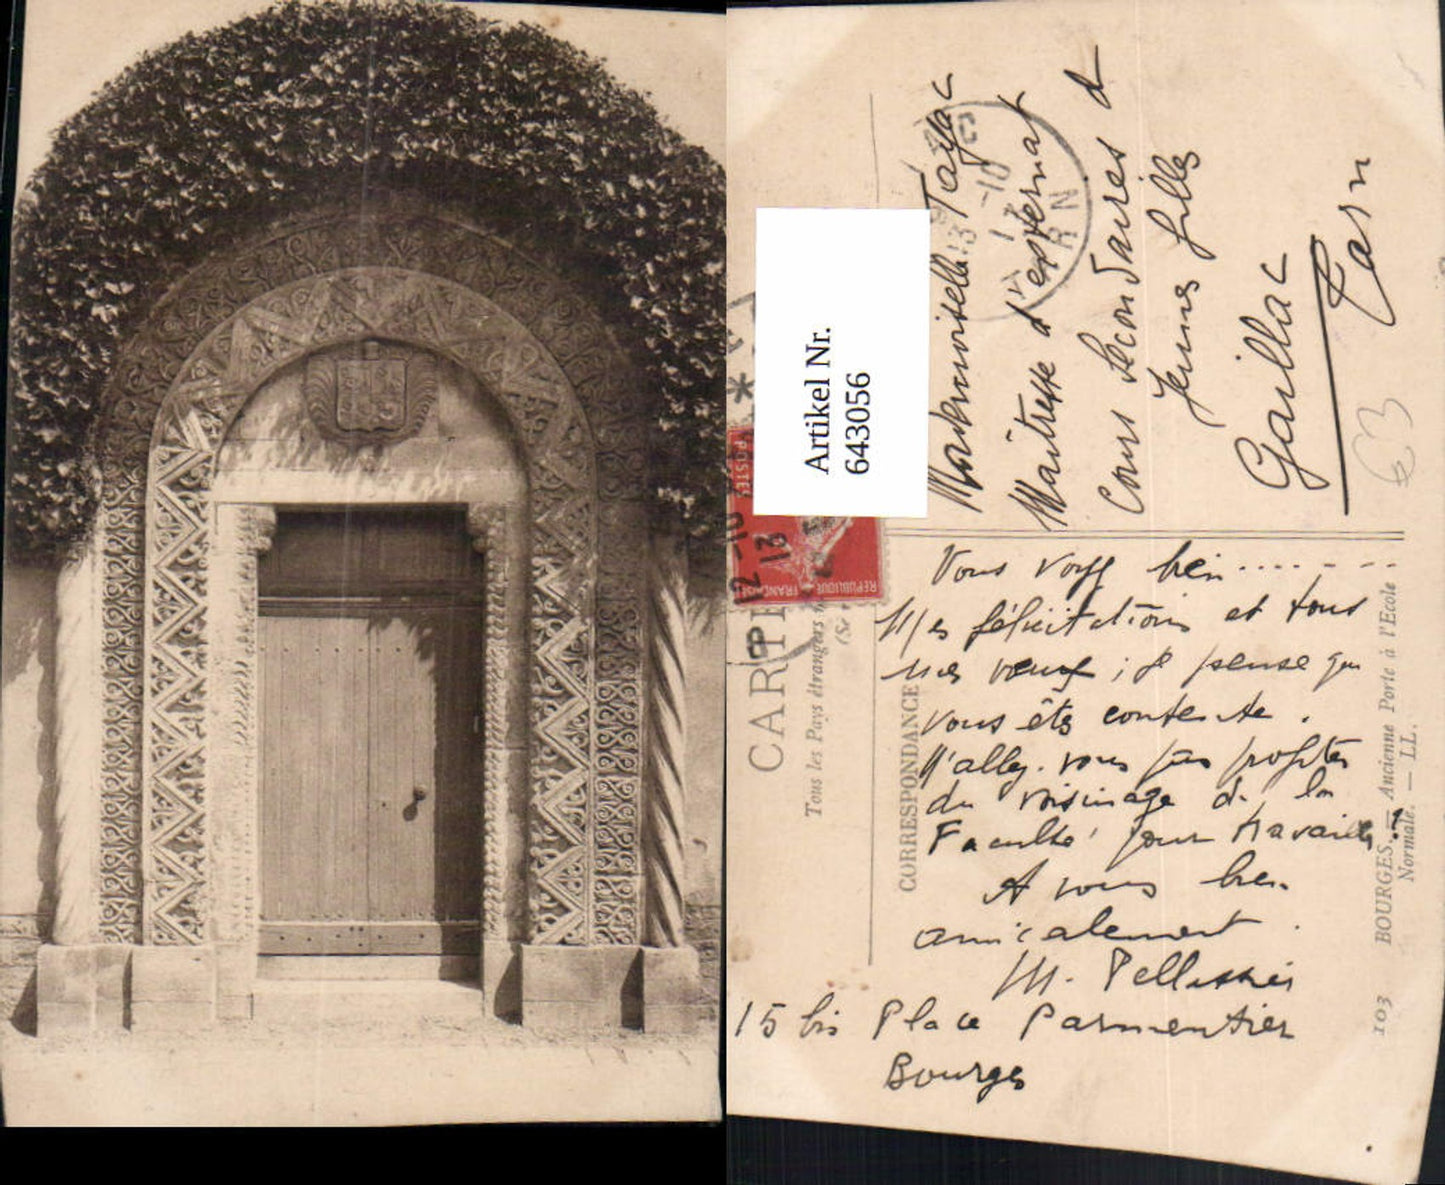 Artikel Nr.
643056
CARTE
Tous les Pays étrangers
CORRESPONDANCE
POSTES
REPUBLIQUE FRANÇAISE
12-10
13
Mademoiselle Tayac
Maîtresse d'externat
Cours Secondaires d
Jeunes filles
Gaillac
Tarn
63
Vous voyez bien........
Mes félicitations et tous
mes vœux ; je pense que
vous êtes contente.
N'allez-vous pas profiter
du voisinage de la
Faculté pour travailler ?
A vous bien
amicalement.
M. Pellissier
15 bis Place Parmentier
Bourges
103 BOURGES. — Ancienne Porte à l'Ecole
Normale. — LL.